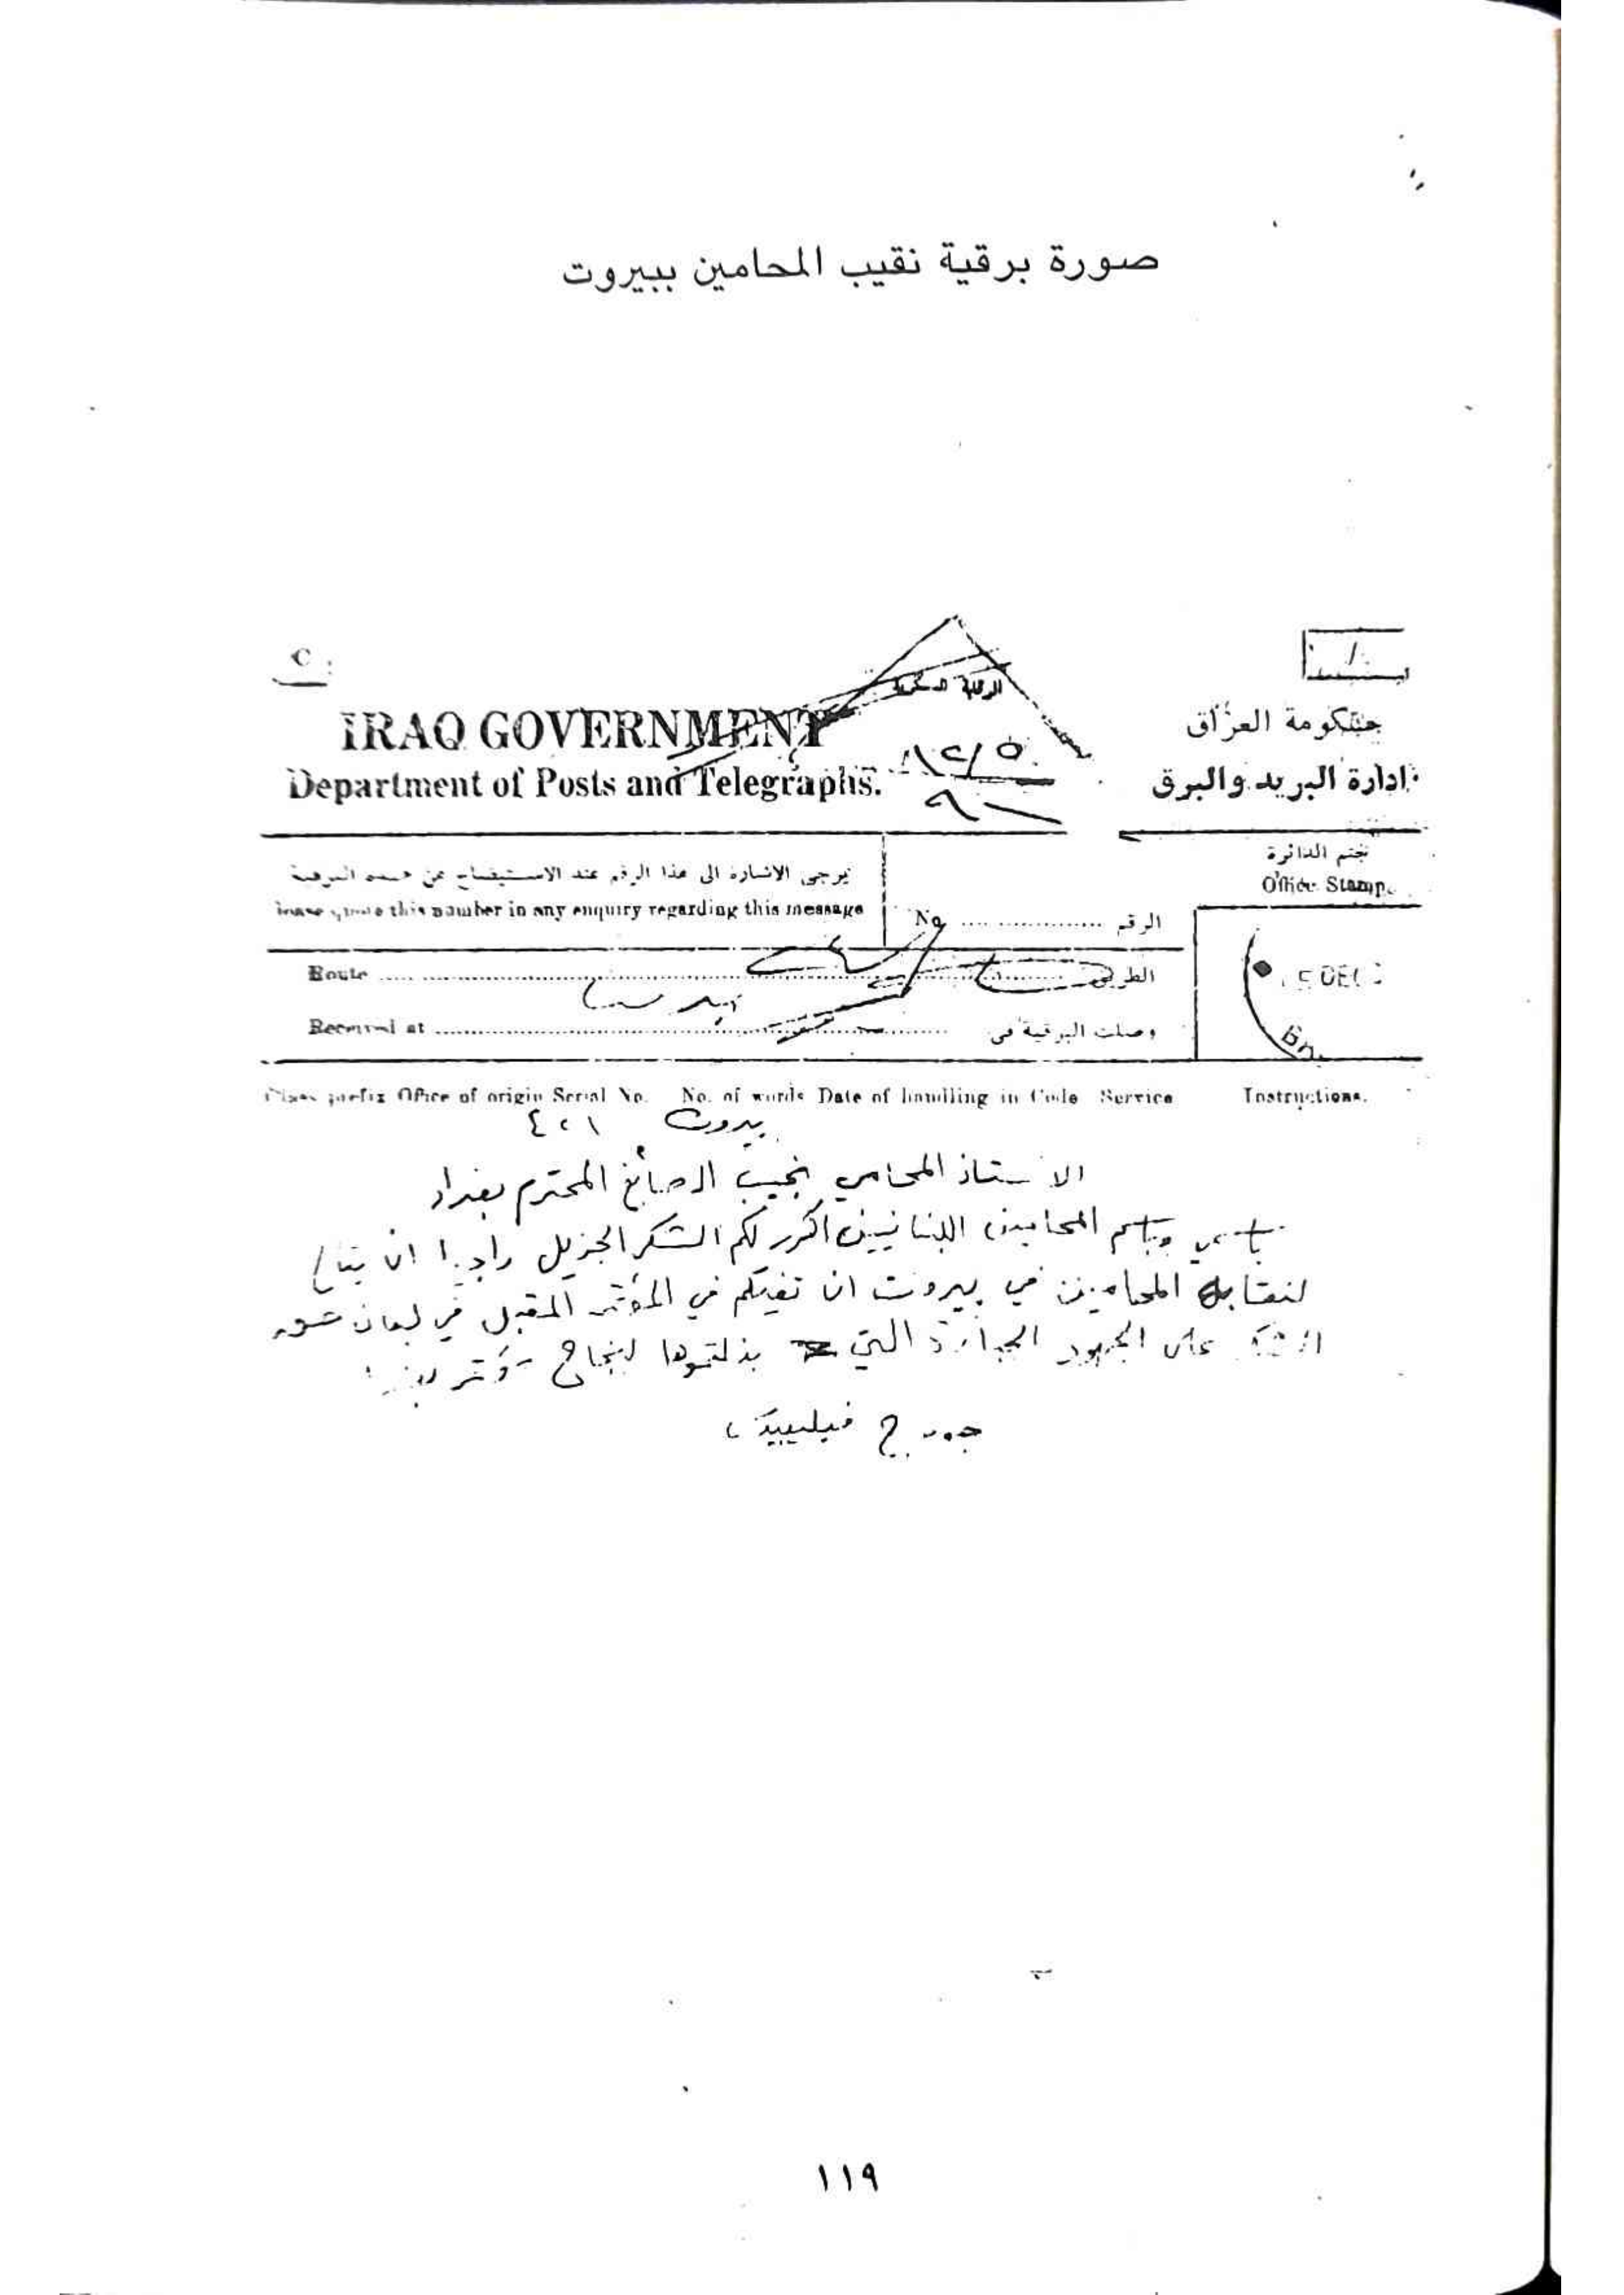 صورة برقية نقيب المحامين ببيروت
IRAQ GOVERNMENT
حكومة العراق
Department of Posts and Telegraphs.
ادارة البريد والبرق
١٢/٥
ختم الدائرة
Office Stamp.
يرجى الاشارة الى هذا الرقم عند الاستيضاح عن
this number in any enquiry regarding this message
No. الرقم
Route الطريق
5 DEC
Received at وصلت البرقية في
Class prefix Office of origin Serial No. No. of words Date of handling in Code Service Instructions.
بيروت ٤٢١
الاستاذ المحامي نجيب الصائغ المحترم بغداد
باسمي وباسم المحامين اللبنانيين اكرر لكم الشكر الجزيل راجيا ان يتاح
لنقابة المحامين في بيروت ان تفيكم في المؤتمر المقبل في لبنان
الشكر على الجهود الجبارة التي بذلتموها لنجاح مؤتمر
جورج فيليبيدس
١١٩